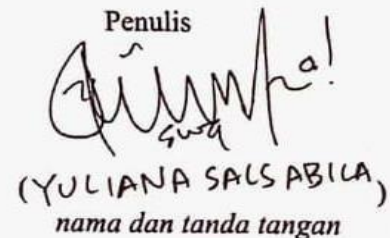 Penulis
(YULIANA SALSABILA)
nama dan tanda tangan